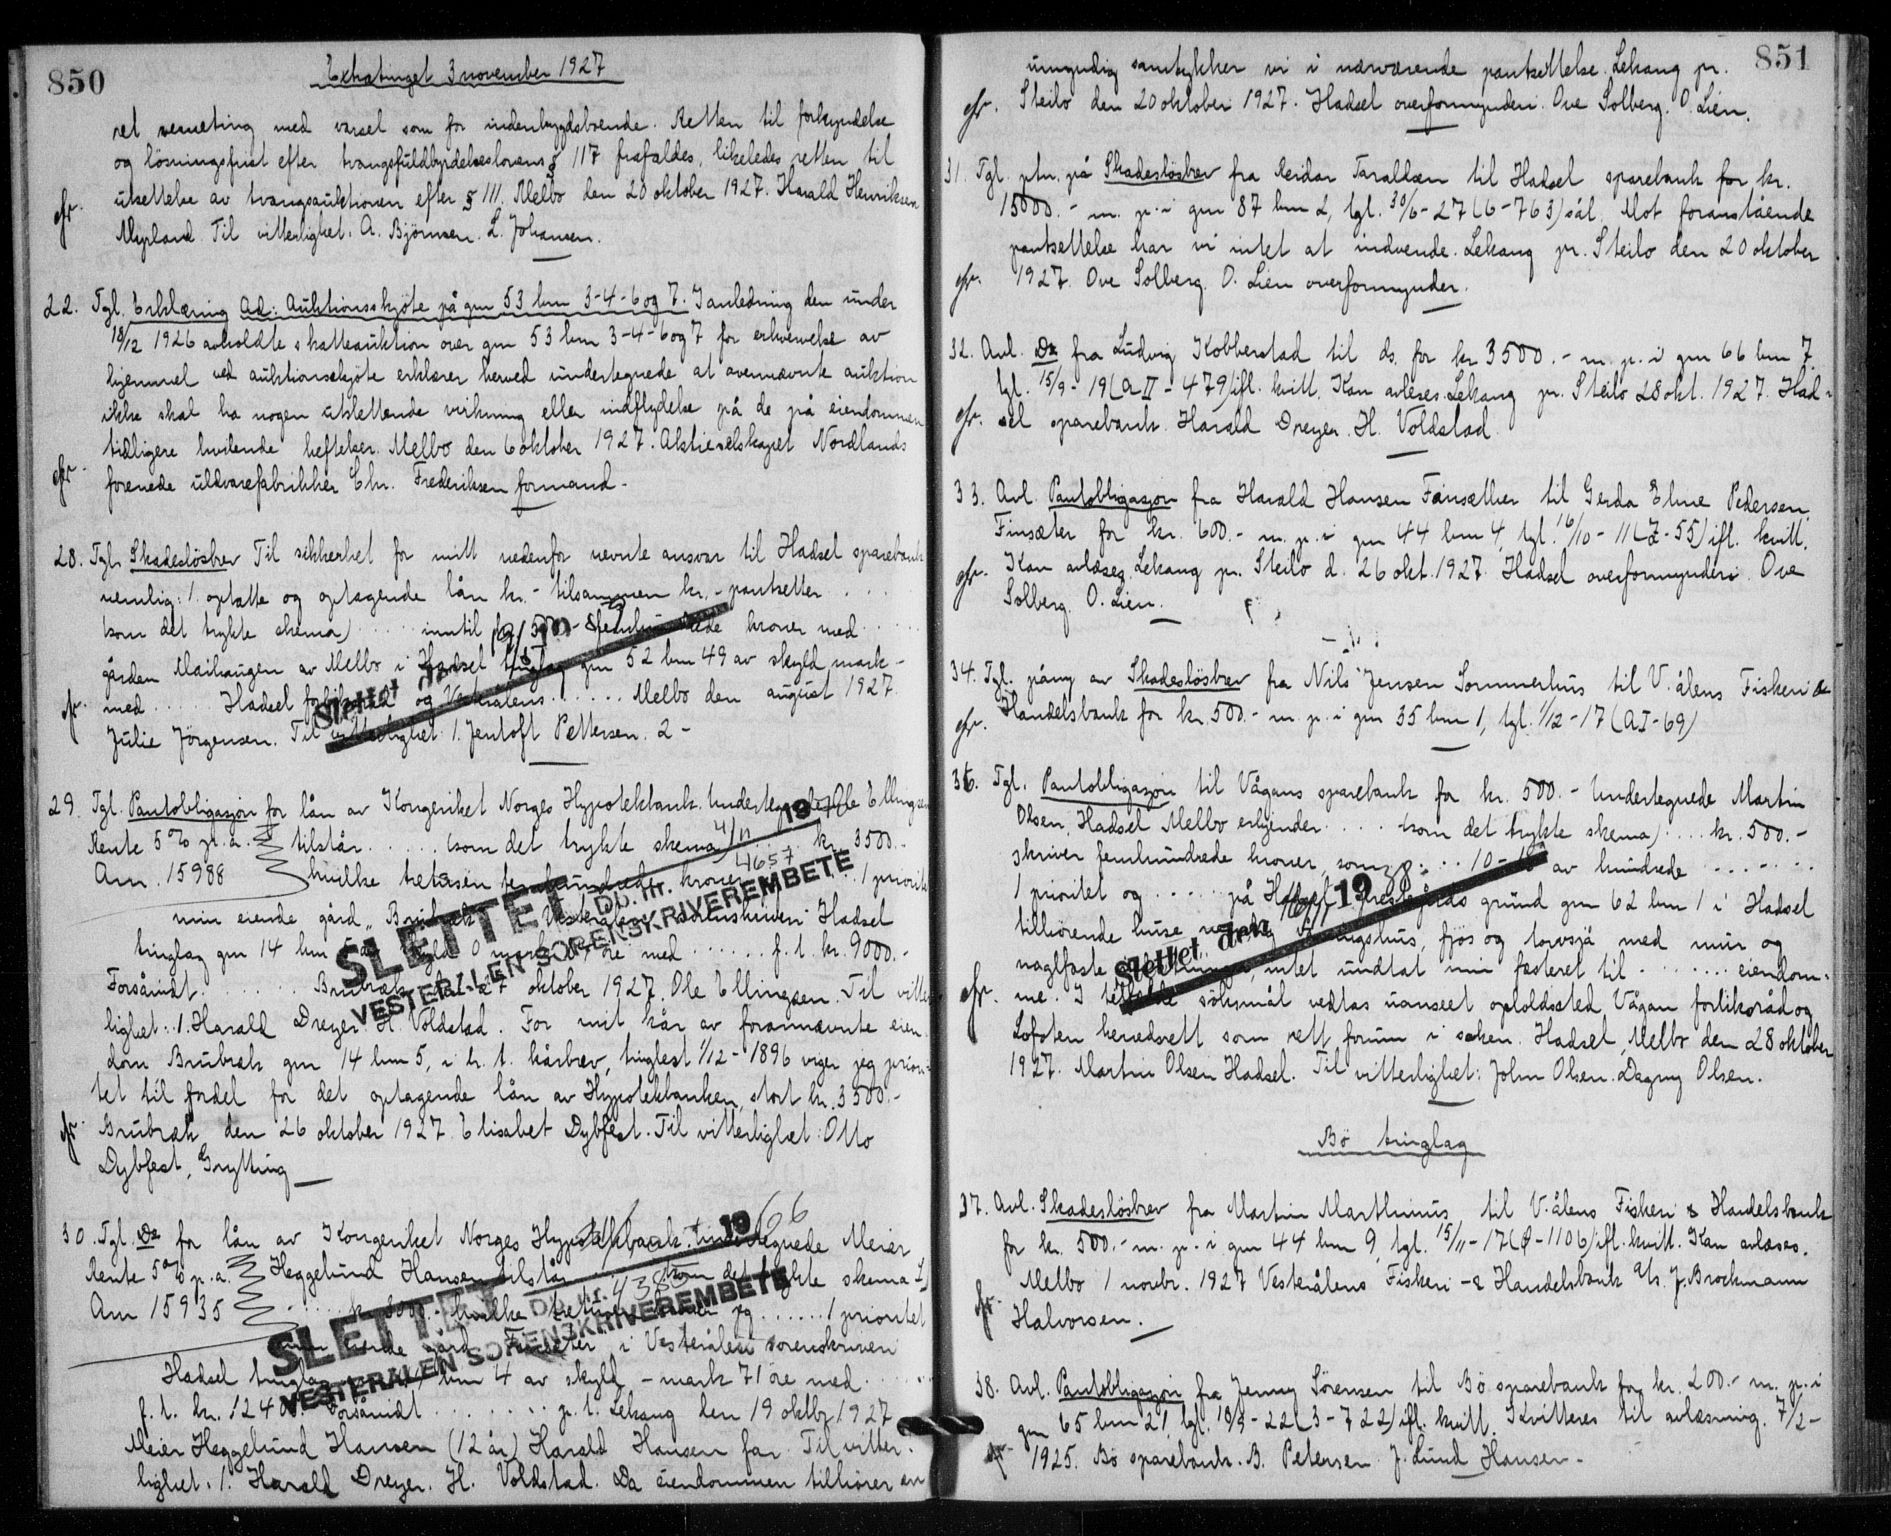 850
Extratinget 3 november 1927
ret verneting med varsel som for indenbygdsboende. Retten til forkyndelse
og lösningsfrist efter tvangsfuldbyrdelseslovens § 117 frafaldes, likeledes retten til
utsettelse av tvangsauktionen efter § 111. Melbo den 20 oktober 1927. Harald Henriksen
Myrland. Til vitterlighet: A. Björnsen. L. Johansen.
22. Tgl. Erklæring Ad: Auktionsskjöte på gnr 53 bnr 3-4-6 og 7. I anledning den under
18/12 1926 avholdte skatteauktion over gnr 53 bnr 3-4-6 og 7 for erhvervelse av
hjemmel ved auktionsskjöte erklærer herved undertegnede at ovennævnte auktion
ikke skal ha nogen utslettende virkning eller indflydelse på de på eiendommen
tidligere hvilende heftelser. Melbo den 6 oktober 1927. Aktieselskapet Nordlands
forenede uldvarefabrikker Chr. Frederiksen formand.
28. Tgl. Skadeslösbrev Til sikkerhet for mitt nedenfor nevnte ansvar til Hadsel sparebank
nemlig: 1. optatte og optagende lån kr. - tilsammen kr. - pantsetter ....
(som det trykte skema) .... inntil kroner med ....
gården Maihaugen av Melbo i Hadsel tinglag gnr 52 bnr 49 av skyld mark -
med ..... Hadsel og Vesterålens ..... Melbo den august 1927.
Julie Jörgensen. Til vitterlighet: 1. Jentoft Pettersen. 2 -
Slettet
29. Tgl. Pantobligasjon for lån av Kongeriket Norges Hypotekbank. Undertegnede Ole Ellingsen
Rente 5% p.a. tilstår ..... (som det trykte skema) .... kr. 3500.-
Anr. 15988 hvilke tretusen femhundrede kroner .... 1 prioritet
min eiende gård "Brubræk" i Vesterålen sorenskriveri Hadsel
tinglag gnr 14 bnr 5 av skyld 0 mark öre med ...... f. t. kr. 9000.-
Forsåvidt ...... Brubræk den 27 oktober 1927. Ole Ellingsen. Til vitter-
lighet: 1. Harald Dreyer H. Voldstad. For mit kår av forannævnte eien-
dom Brubræk gnr 14 bnr 5, i h. t. kårbrev, tinglest 1/12-1896 viger jeg priori-
tet til fordel for det optagende lån av Hypotekbanken, stort kr. 3500.-
Brubræk den 26 oktober 1927. Elisabet Dybfest. Til vitterlighet: Otto
Dybfest, Grytting
4/11 1940
SLETTET Db. nr. 4657
VESTERÅLEN SORENSKRIVEREMBETE
30. Tgl. Do for lån av Kongeriket Norges Hypotekbank. Undertegnede Meier
Rente 5% p.a. Heggelund Hansen tilstår (som det trykte skema)
Anr 15935 ..... kr. 3000.- hvilke tretusen kroner jeg ...... 1 prioritet
min eiende gård Finsæter i Vesterålen sorenskriveri
Hadsel tinglag bnr 4 av skyld - mark 71 öre med ....
f. t. kr. Forsåvidt ....... p. t. Lekang den 19 oktbr 1927
Meier Heggelund Hansen (12 år) Harald Hansen far. Til vitter-
lighet: 1. Harald Dreyer. H. Voldstad. Da eiendommen tilhörer en
1966
SLETTET Db. nr.
VESTERÅLEN SORENSKRIVEREMBETE
851
umyndig samtykker vi i nærværende pantsettelse. Lekang pr.
Steilo den 20 oktober 1927. Hadsel overformynderi. Ove Solberg. O. Lien.
31. Tgl. ptn. på Skadeslösbrev fra Reidar Taraldsen til Hadsel sparebank for kr.
15000.- m. p. i gnr 87 bnr 2, tgl. 30/6-27 (6-763) sål. Mot foranstående
pantsettelse har vi intet at indvende. Lekang pr. Steilo den 20 oktober
1927. Ove Solberg. O. Lien overformynder.
32. Avl. Do fra Ludvig Kobberstad til ds. for kr 3500.- m. p. i gnr 66 bnr 7
tgl. 15/9-19 (A II-479) ifl. kvitt. Kan avleses. Lekang pr. Steilo 28 okt. 1927. Had-
sel sparebank. Harald Dreyer. H. Voldstad.
33. Avl. Pantobligasjon fra Harald Hansen Finsæther til Gerda Eline Pedersen,
Finsæter for kr. 600.- m. p. i gnr 44 bnr 4, tgl. 16/10-11 (Z-55) ifl. kvitt.
Kan avlæses. Lekang pr. Steilo d. 26 okt. 1927. Hadsel overformynderi. Ove
Solberg. O. Lien.
34. Tgl. påny av Skadeslösbrev fra Nils Jensen Sommerhus til V.ålens Fiskeri &
Handelsbank for kr. 500.- m. p. i gnr 35 bnr 1, tgl. 1/12-17 (A I-69)
36. Tgl. Pantobligasjon til Vågans sparebank for kr. 500.- Undertegnede Martin
Olsen, Hadsel Melbo erkjender .... (som det trykte skema) .... kr. 500.-
skriver femhundrede kroner, som .... 10- av hundrede ......
1 prioritet og ..... på Hadsel prestegårds grund gnr 62 bnr 1 i Hadsel
tilhörende huse nemlig våningshus, fjös og torvsjå med mur og
naglfaste intet undtat min fæsteret til ....... eiendom-
me. I tilfælde söksmål vedtas uanseet opholdssted Vågan forliksråd og
Lofoten herredsrett som rett forum i saken. Hadsel, Melbo den 28 oktober
1927. Martin Olsen Hadsel. Til vitterlighet: John Olsen. Dagny Olsen.
Slettet den 19
Bö tinglag
37. Avl. Skadeslösbrev fra Martin Marthinus til V.ålens Fiskeri & Handelsbank
for kr. 500.- m. p. i gnr 44 bnr 9, tgl. 15/11-17 (Ø-1106) ifl. kvitt. Kan avlæses.
Melbo 1 novbr. 1927 Vesterålens Fiskeri- & Handelsbank A/s. J. Brockmann
Halvorsen.
38. Avl. Pantobligasjon fra Jenny Sörensen til Bö sparebank for kr. 200.- m. p. i
gnr 65 bnr 21, tgl. 18/9-22 (3-722) ifl. kvitt. Kvitteres til avlæsning. 7/2-
1925. Bö sparebank. B. Petersen J. Lund Hansen.